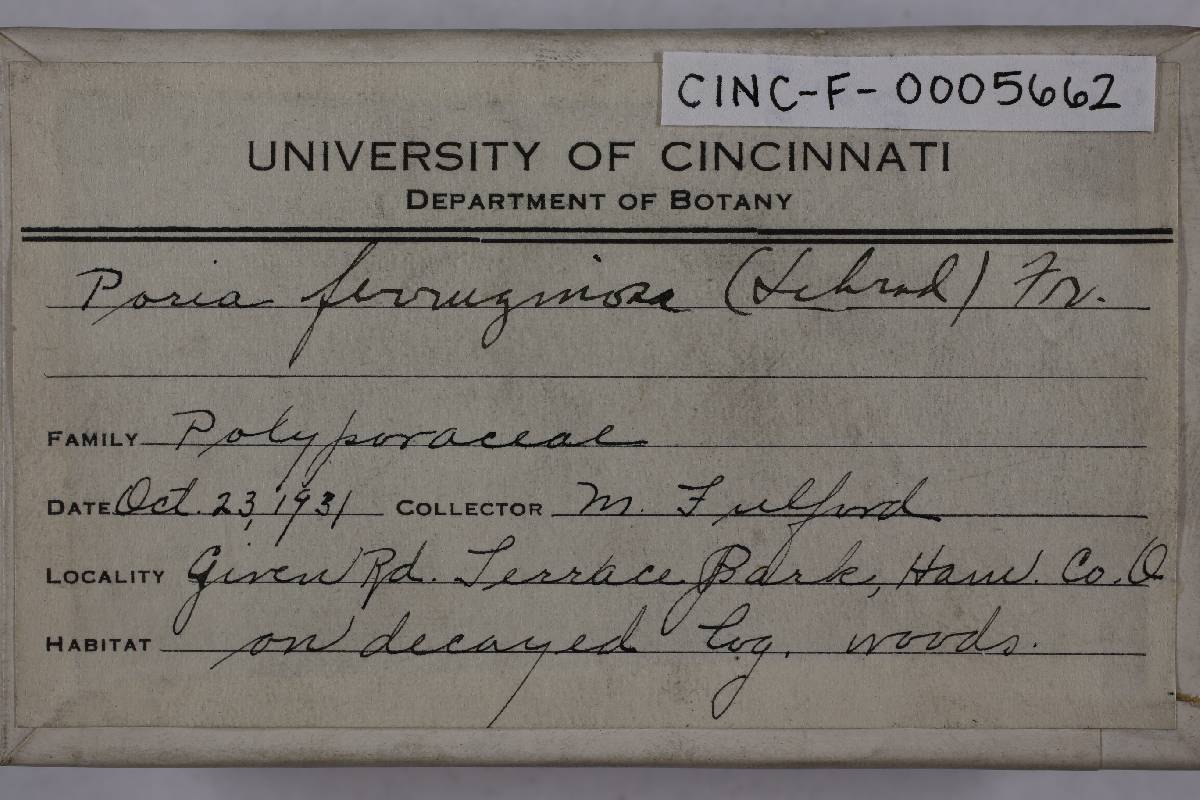 CINC-F-0005662
UNIVERSITY OF CINCINNATI
DEPARTMENT OF BOTANY
Poria ferruginosa (Schrad) Fr.
FAMILY Polyporaceae
DATE Oct. 23, 1931 COLLECTOR M. Fulford
LOCALITY Given Rd. Terrace Park, Ham. Co. O
HABITAT on decayed log. woods.